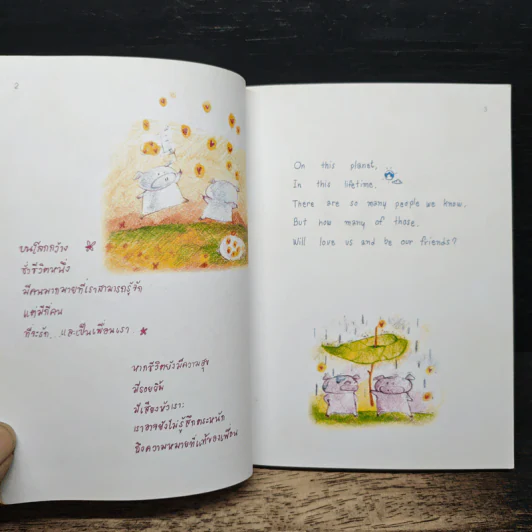 2
บนโลกกว้าง
ชั่วชีวิตหนึ่ง
มีคนมากมายที่เราสามารถรู้จัก
แต่มีกี่คน
ที่จะรัก...และเป็นเพื่อนเรา
หากชีวิตยังมีความสุข
มีรอยยิ้ม
มีเสียงหัวเราะ
เราอาจยังไม่รู้สึกตระหนัก
ถึงความหมายที่แท้ของเพื่อน
On this planet,
In this lifetime,
There are so many people we know.
But how many of those,
Will love us and be our friends?